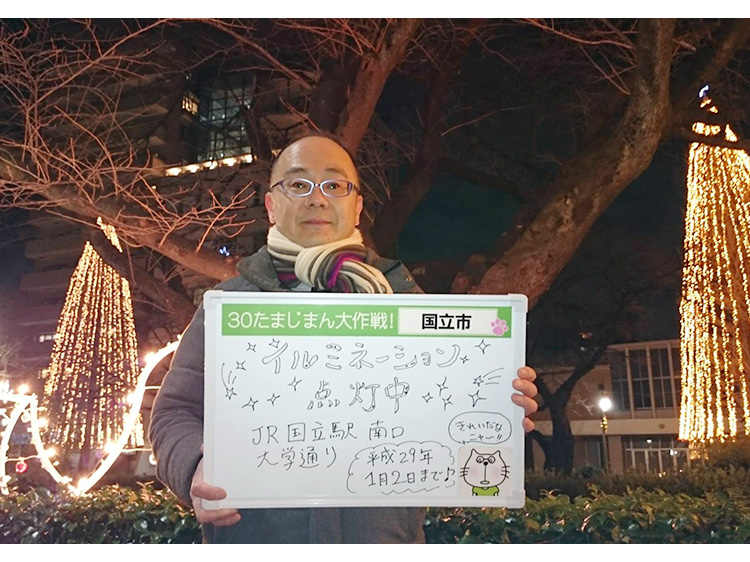 30たまじまん大作戦! 国立市
イルミネーション
点灯中
JR国立駅 南口
大学通り
平成29年
1月2日まで♪
きれいだな
ニャ〜!!